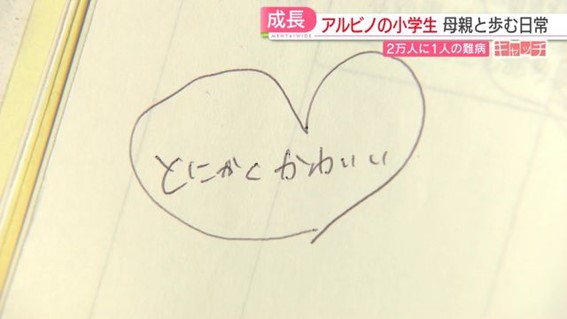 成長
アルビノの小学生 母親と歩む日常
2万人に1人の難病
キャッチ
とにかくかわいい